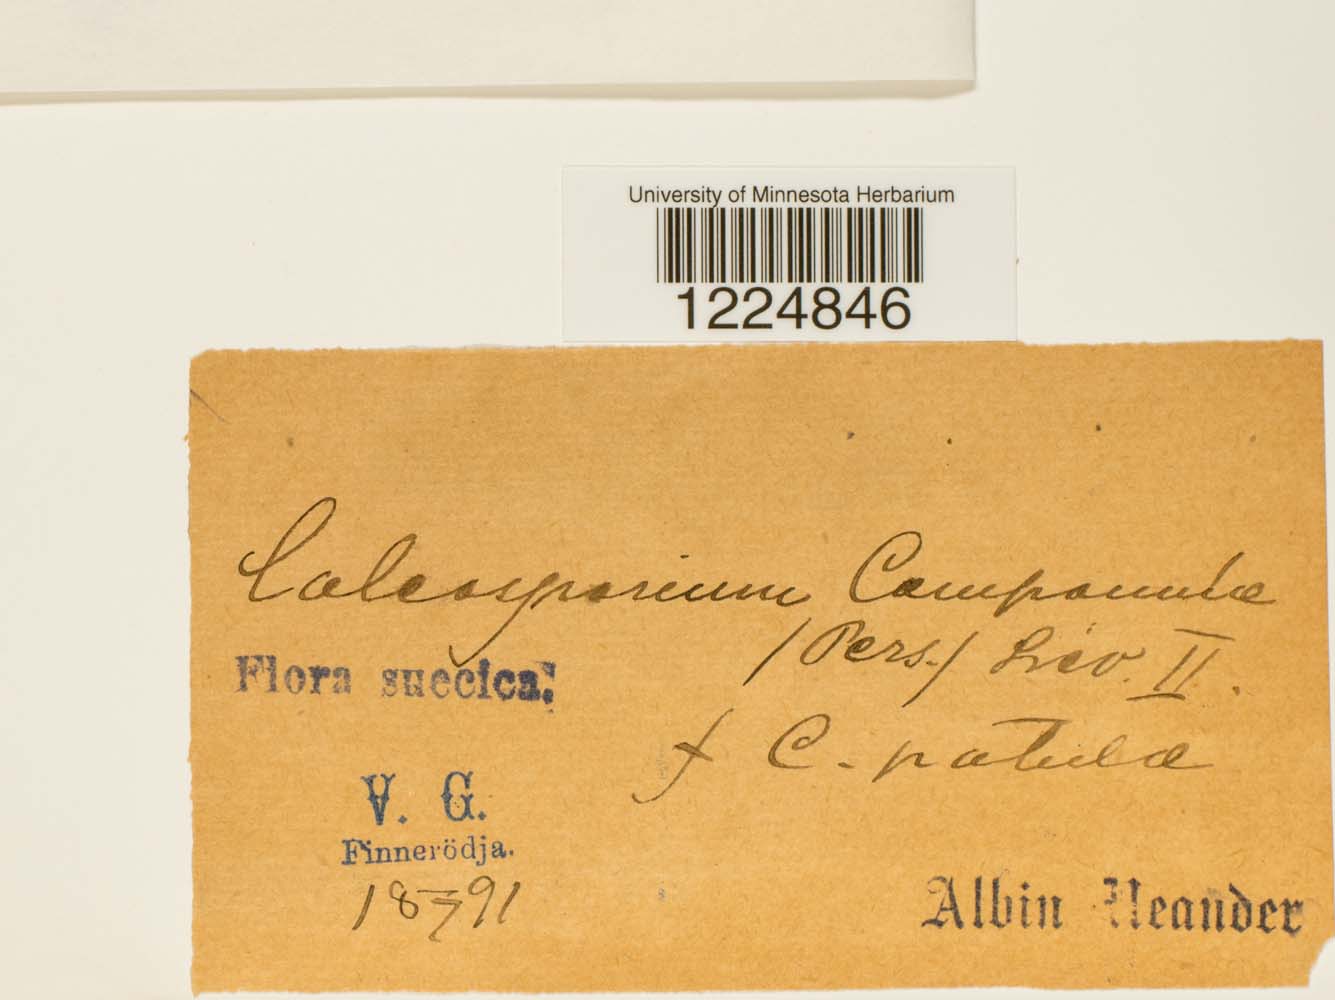 University of Minnesota Herbarium
1224846
Coleosporium Campanulæ
(Pers.) Lev. II.
Flora suecica:
f C. patula
V. G.
Finnerödja.
18 7/7 91
Albin Neander